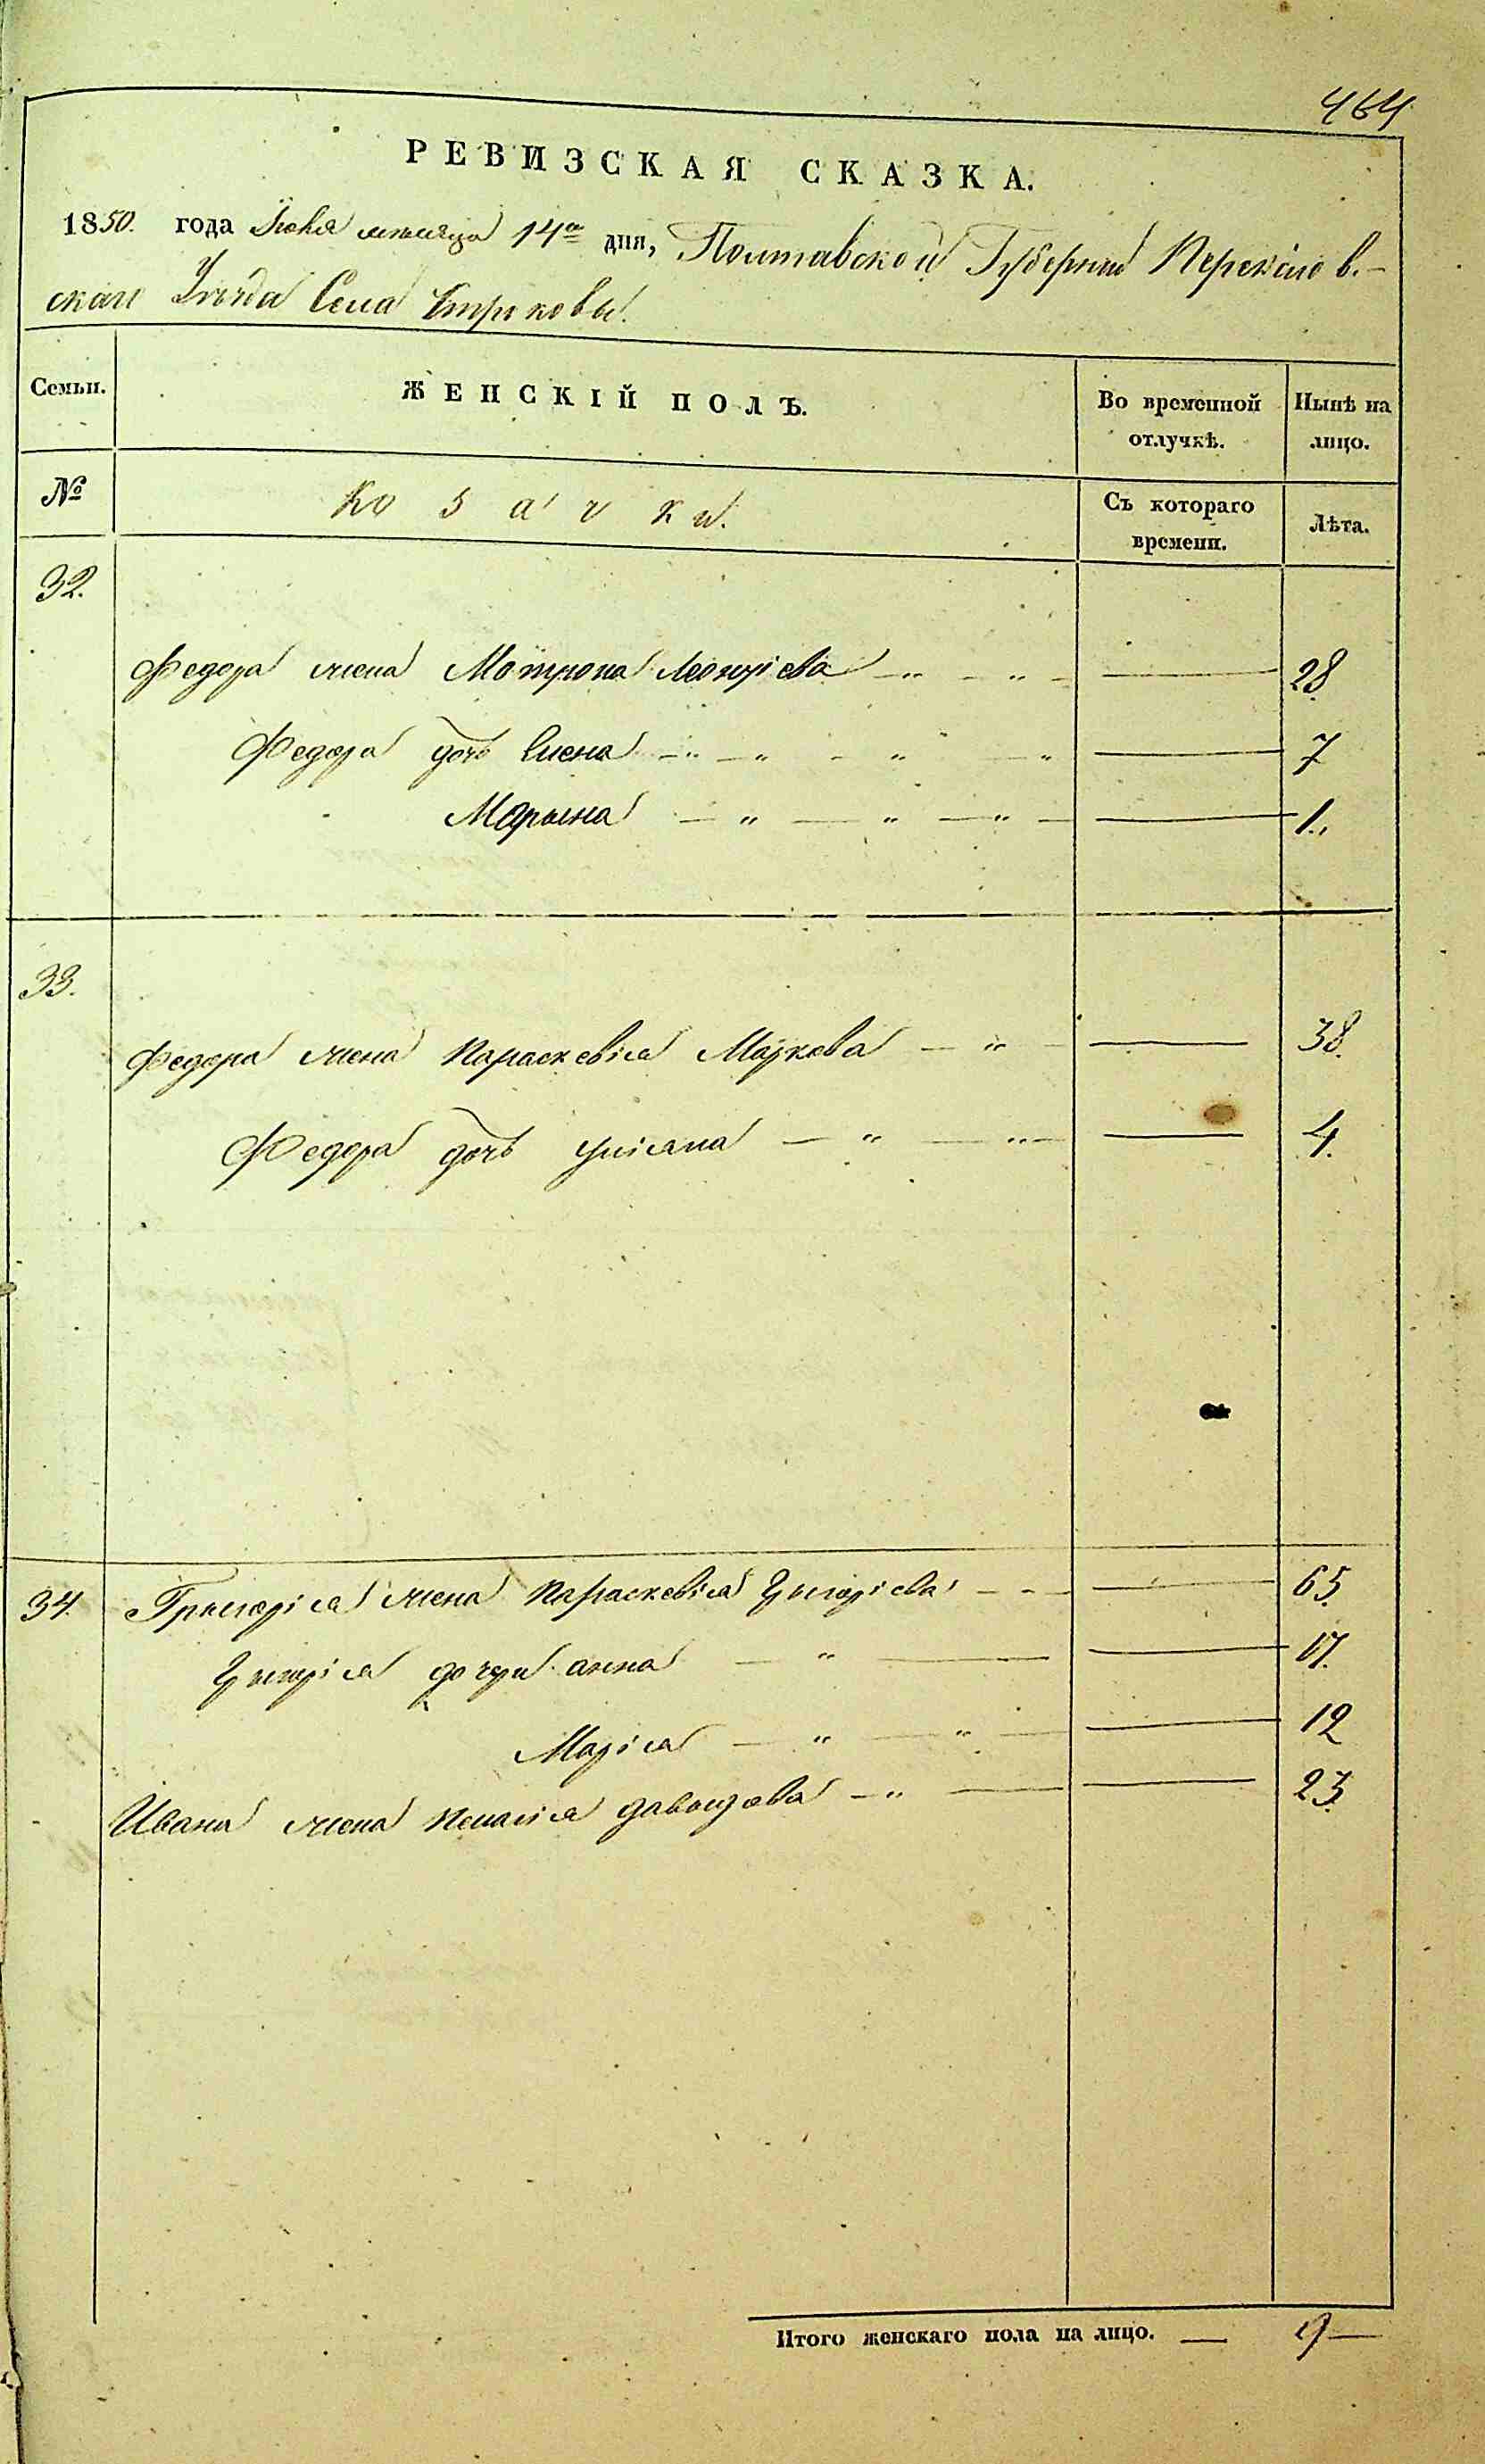 464
РЕВИЗСКАЯ СКАЗКА.
1850. года Іюня мѣсяца 14го дня, Полтавской Губерніи Переясłов-
скаго Уѣзда Села
Семьи. ЖЕНСКІЙ ПОЛЪ. Во временной отлучкѣ. Нынѣ на лицо.
№ Козачки. Съ котораго времени. Лѣта.
32.
Федора жена Мотрона Леонтіева 28
Федора дочь Елена 7
Марына 1.
33.
Федора жена Параскевія Маркова 38.
Федора дочь Уліана 4.
34. Григорія жена Параскевія Григоріева 65.
Григорія дочери Анна 17.
Марія 12
Ивана жена Пелагія Давыдова 23.
Итого женскаго пола на лицо. — 9 —